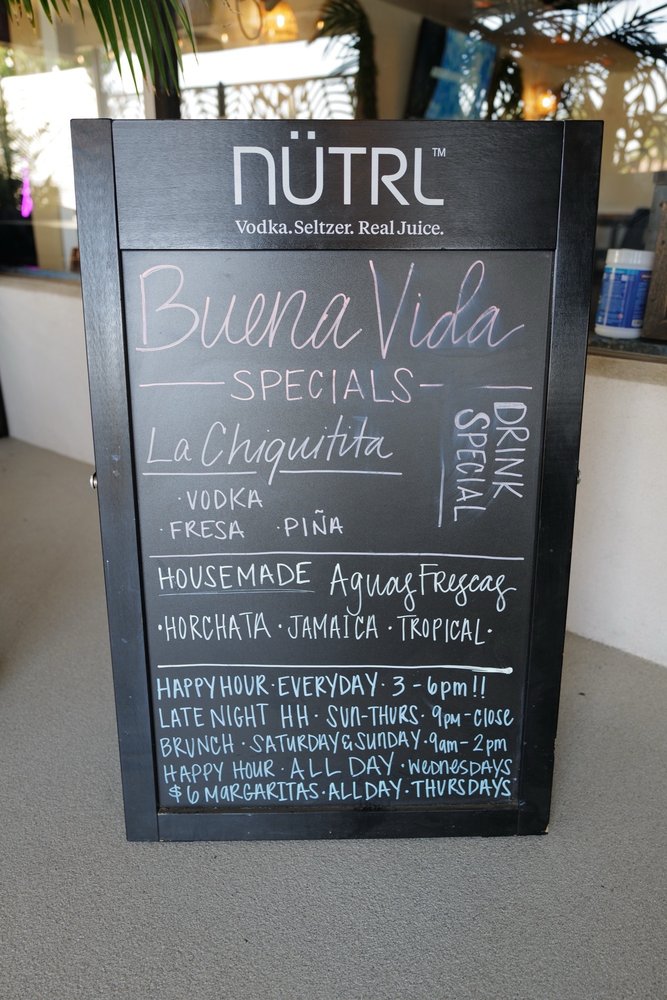 NÜTRL™
Vodka.Seltzer. Real Juice.
Buena Vida
SPECIALS
La Chiquitita
DRINK
SPECIAL
· VODKA
· FRESA · PIÑA
HOUSEMADE Aguas Frescas
· HORCHATA · JAMAICA · TROPICAL ·
HAPPY HOUR · EVERYDAY · 3 - 6pm !!
LATE NIGHT HH · SUN-THURS · 9pm - close
BRUNCH · SATURDAY & SUNDAY · 9am - 2pm
HAPPY HOUR · ALL DAY · WEDNESDAYS
$6 MARGARITAS · ALL DAY · THURSDAYS